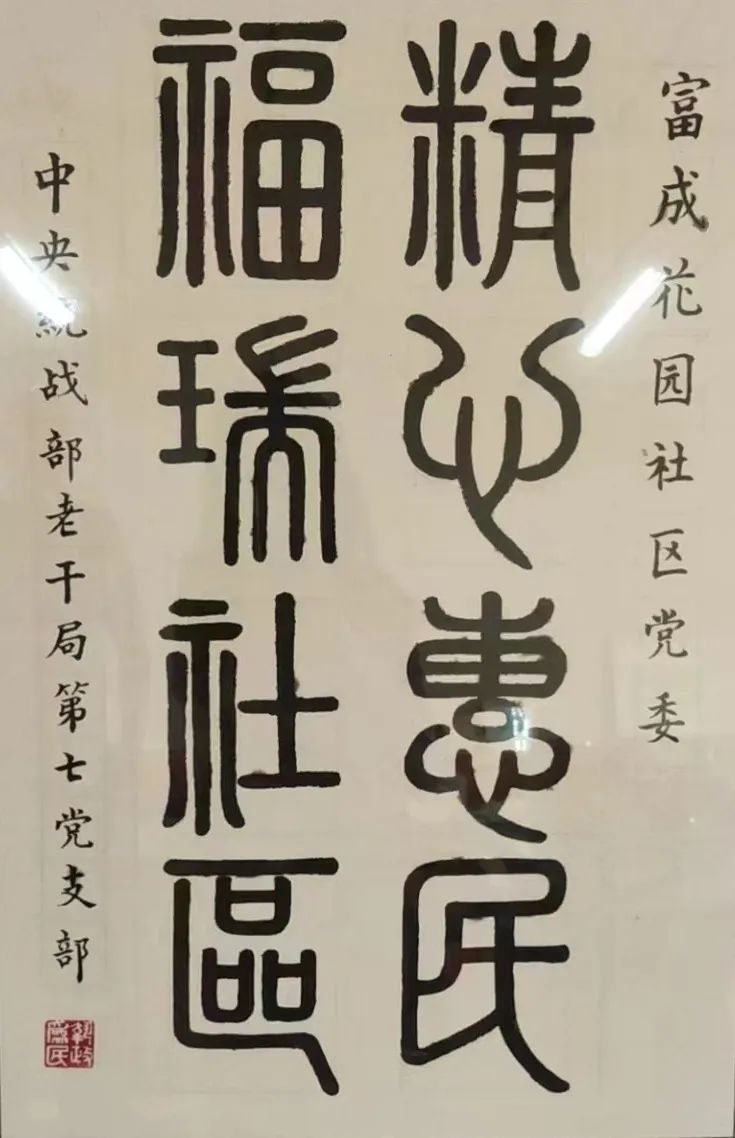 富成花园社区党委
精心惠民
福瑞社區
中央統战部老干局第七党支部
執政
為民